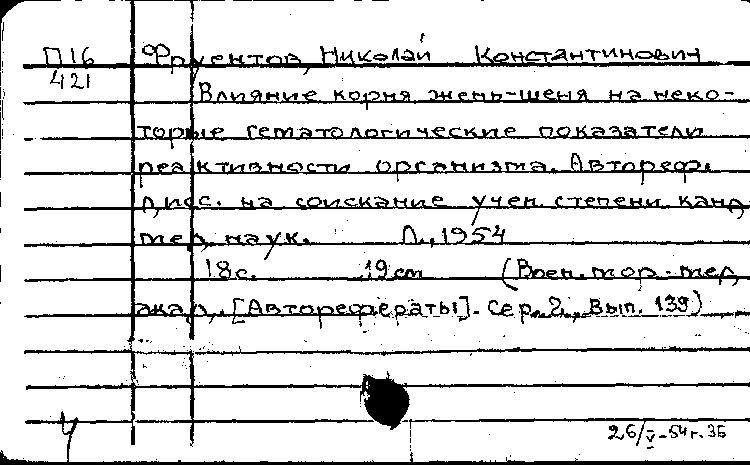 П16 Фруентов, Николай Константинович
421
Влияние корня жень-шеня на неко-
торые гематологические показатели
реактивности организма. Автореф.
дисс. на соискание учен. степени канд
мед. наук. Л., 1954
18с. 19см (Воен. мор. мед
акад. [Авторефераты]. Сер. 2, Вып. 139)
26/V-54г.